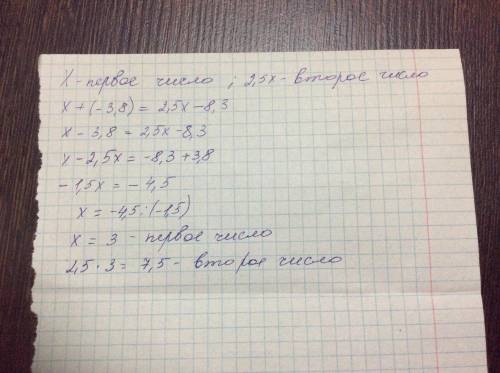 X - первое число ; 2,5x - второе число
x + (-3,8) = 2,5x - 8,3
x - 3,8 = 2,5x - 8,3
x - 2,5x = -8,3 + 3,8
-1,5x = -4,5
x = -4,5 : (-1,5)
x = 3 - первое число
2,5 · 3 = 7,5 - второе число